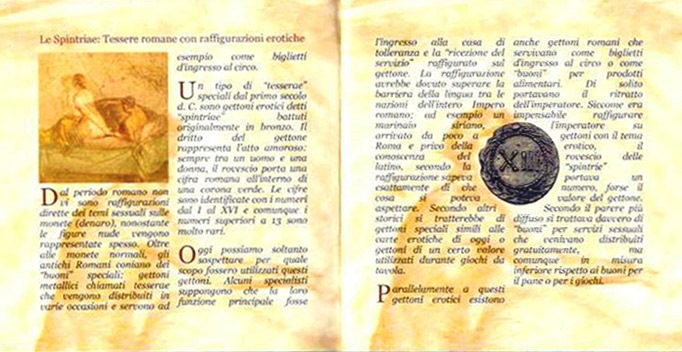 Le Spintriae: Tessere romane con raffigurazioni erotiche
Dal periodo romano non
vi sono raffigurazioni
dirette dei temi sessuali sulle
monete (denaro), nonostante
le figure nude vengono
rappresentate spesso. Oltre
alle monete normali, gli
antichi Romani coniano dei
"buoni" speciali: gettoni
metallici chiamati tesserae
che vengono distribuiti in
varie occasioni e servono ad
esempio come biglietti
d'ingresso al circo.
Un tipo di "tesserae"
speciali dal primo secolo
d. C. sono gettoni erotici detti
"spintriae" battuti
originalmente in bronzo. Il
dritto del gettone
rappresenta l'atto amoroso:
sempre tra un uomo e una
donna, il rovescio porta una
cifra romana all'interno di
una corona verde. Le cifre
sono identificate con i numeri
dal I al XVI e comunque i
numeri superiori a 13 sono
molto rari.
Oggi possiamo soltanto
sospettare per quale
scopo fossero utilizzati questi
gettoni. Alcuni specialisti
suppongono che la loro
funzione principale fosse
l'ingresso alla casa di
tolleranza e la "ricezione del
servizio" raffigurato sul
gettone. La raffigurazione
avrebbe dovuto superare la
barriera della lingua tra le
nazioni dell'intero Impero
romano; ad esempio un
marinaio siriano,
arrivato da poco a
Roma e privo della
conoscenza del
latino, secondo la
raffigurazione sapeva
esattamente di che
cosa si poteva
aspettare. Secondo altri
storici si tratterebbe di
gettoni speciali simili alle
carte erotiche di oggi o
gettoni di un certo valore
utilizzati durante giochi da
tavola.
Parallelamente a questi
gettoni erotici esistono
anche gettoni romani che
servivano come biglietti
d'ingresso al circo o come
"buoni" per prodotti
alimentari. Di solito
portavano il ritratto
dell'imperatore. Siccome era
impensabile raffigurare
l'imperatore su
gettoni con il tema
erotico, il
rovescio delle
"spintrie"
portava un
numero, forse il
valore del gettone.
Secondo il parere più
diffuso si trattava davvero di
"buoni" per servizi sessuali
che venivano distribuiti
gratuitamente, ma
comunque in misura
inferiore rispetto ai buoni per
il pane o per i giochi.